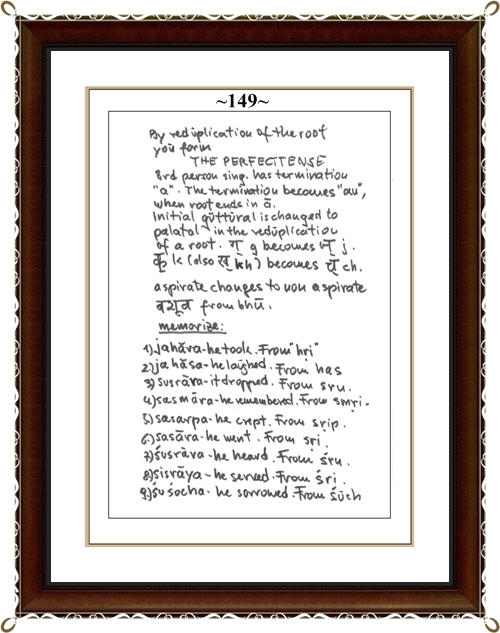 ~149~
By reduplication of the root
you form
THE PERFECT TENSE
3rd person sing. has termination
"a". The termination becomes "au",
when root ends in ā.
Initial guttural is changed to
palatal in the reduplication
of a root. ग् g becomes ज् j.
क् k (also ख् kh) becomes च् ch.
aspirate changes to non aspirate
बभूव from bhū.
memorize:
1) jahāra - he took. From "hri"
2) jahāsa - he laughed. From has
3) susrāva - it dropped. From sru.
4) sasmāra - he remembered. From smri.
5) sasarpa - he crept. From srip.
6) sasāra - he went. From sri.
7) śusrāva - he heard. From śru.
8) sisrāya - he served. From śri.
9) śuśocha - he sorrowed. From śuch